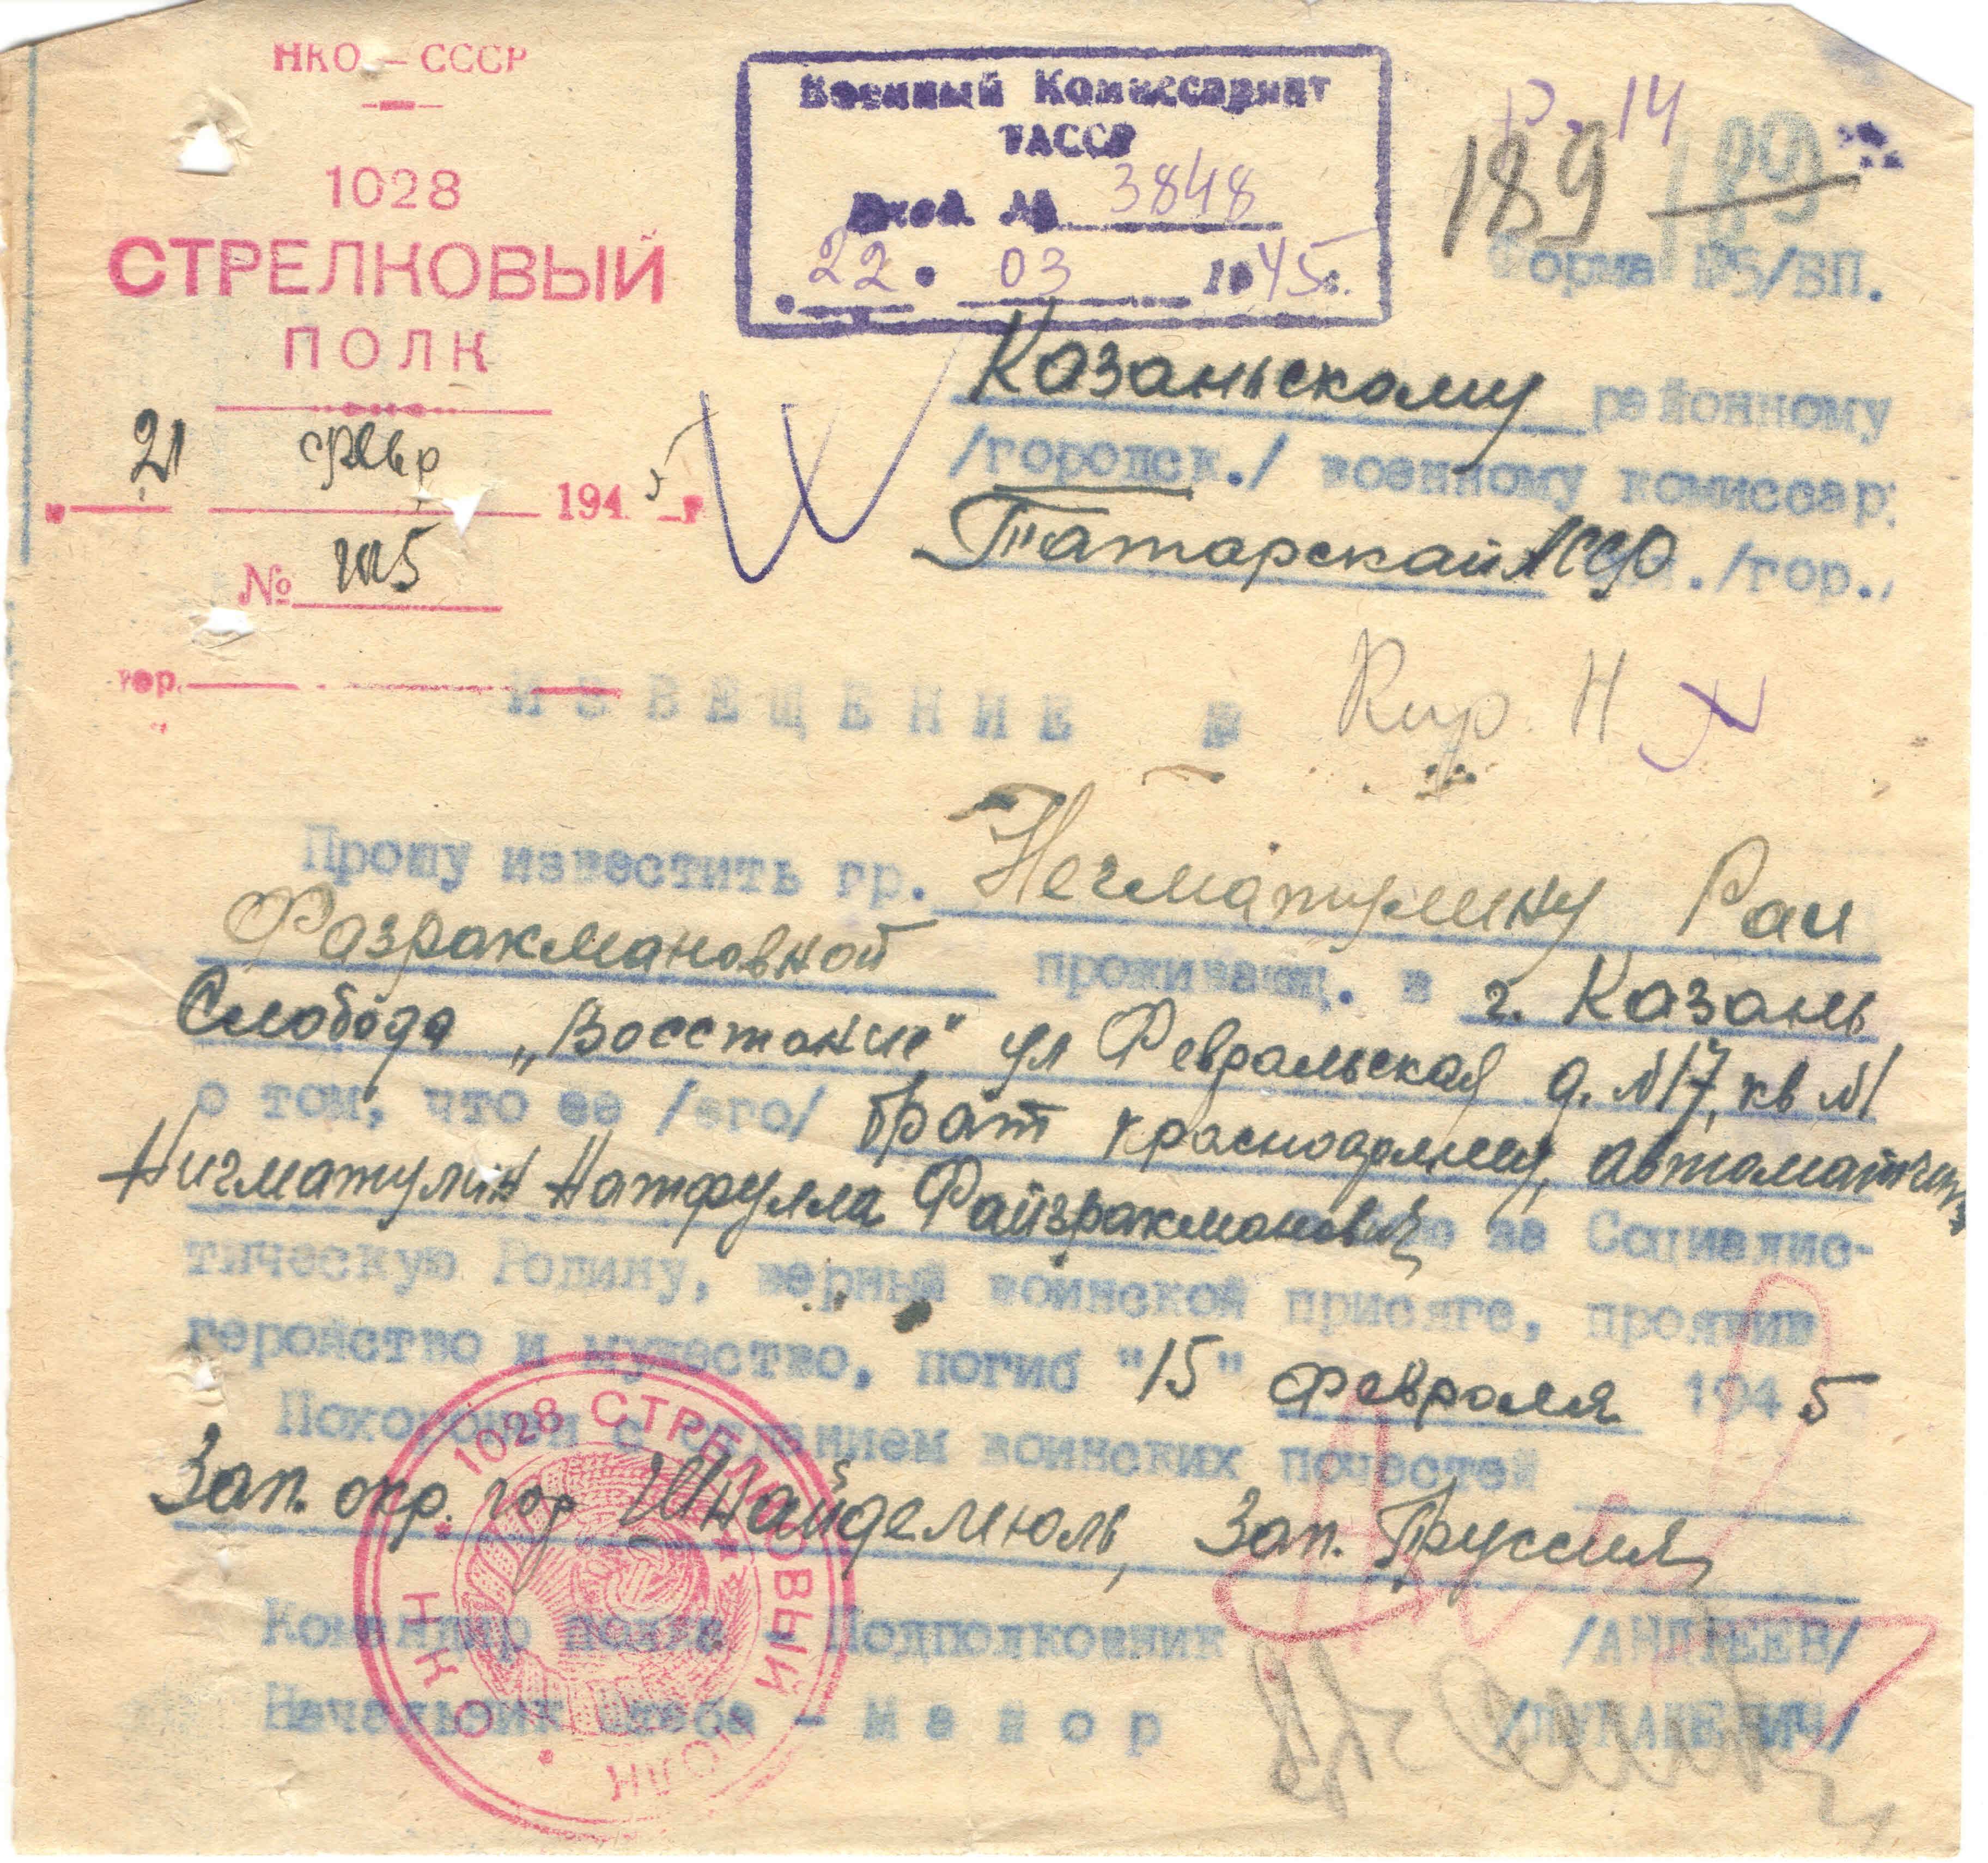 НКО — СССР
1028
СТРЕЛКОВЫЙ
ПОЛК
21 февр 1945 г
№
гор.
Военный Комиссариат
ТАССР
Вход. № 3848
22. 03 1945 г.
Р. 14
189 189
Форма №5/БП.
Казаньскому районному
/городск./ военному комиссар.
Татарской АССР ./гор./
ИЗВЕЩЕНИЕ № Кир. Н
Прошу известить гр. Негматулину Раи
Фазрахмановной проживающ. в г. Казань
Слобода „Восстание" ул Февральская д. №17, кв №1
о том, что ее /его/ брат красноармеец, автоматчик
Нигматулин Натфулла Файзрахманович за Социалис-
тическую Родину, верный воинской присяге, проявив
геройство и мужество, погиб "15" февраля 1945
Похоронен с отданием воинских почестей
Зап. окр. гор Шнайдемюль, Зап. Пруссия
Командир полка - Подполковник /АНДРЕЕВ/
Начальник штаба - Майор /ЛУКАШЕВИЧ/
1028 СТРЕЛКОВЫЙ ПОЛК
НКО